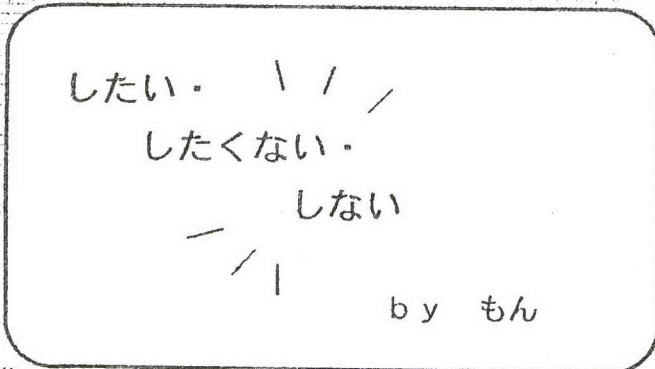 したい・
したくない・
しない
ｂｙ　もん